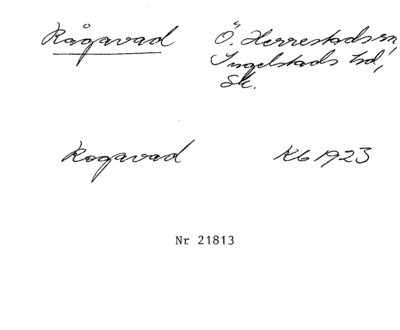 Rågavad Ö. Herrestads sn,
Ingelstads hd,
Sk.
Rogavad Kb 1923
Nr 21813